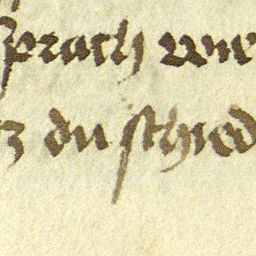 sprach wie
z du schied